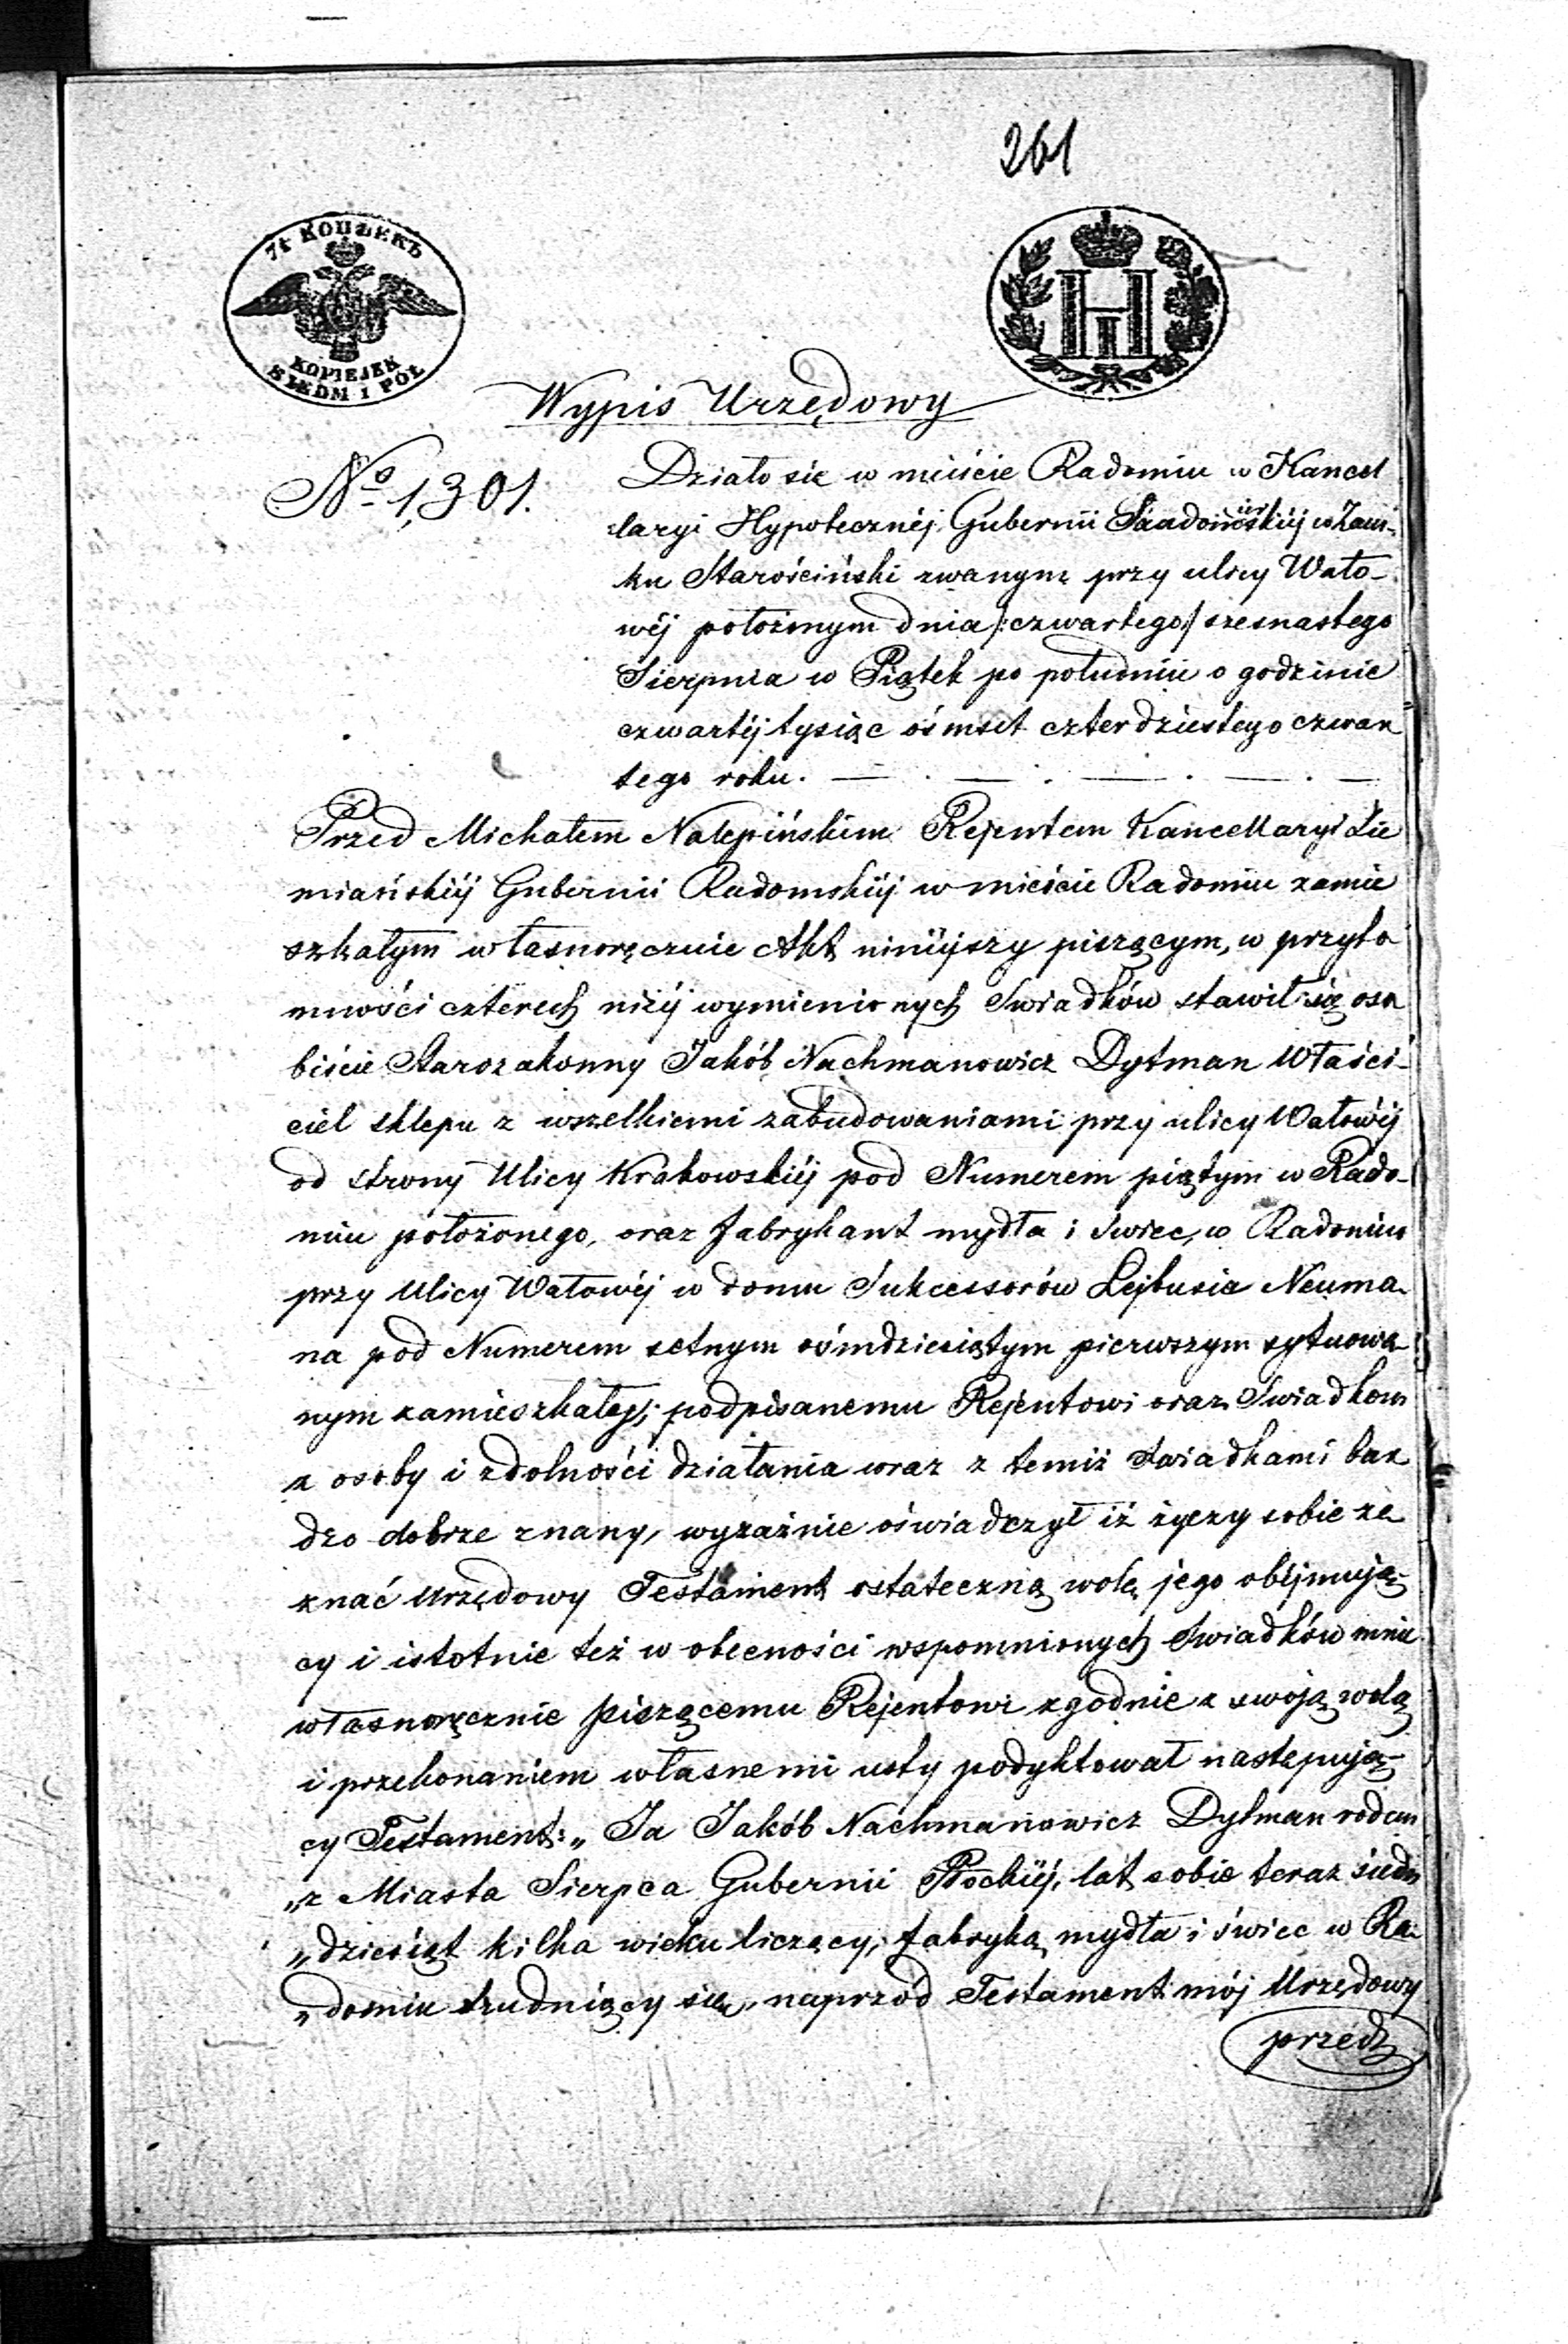 261
7½ КОПѢЕКЪ
KOPIEJEK
SIEDM I PÓŁ
Wypis Urzędowy
No 1,301.
Działo się w mieście Radomiu w Kancel
laryi Hypotecznéj Gubernii Sandomirskiéj w Zam-
ku Starościński zwanym przy ulicy Wało-
wéj położonym dnia /:czwartego/ szesnastego
Sierpnia w Piątek po południu o godzinie
czwartéj tysiąc ośmset czterdziestego czwar
tego roku.
Przed Michałem Nalepińskim Rejentem Kancellaryi Zie
miańskiéj Gubernii Radomskiéj w mieście Radomiu zamie
szkałym własnoręcznie Akt niniéjszy piszącym, w przyto
mności czterech niżéj wymienionych Świadków stawił się oso
biście Starozakonny Jakób Nachmanowicz Dytman Właści-
ciel sklepu z wszelkiemi zabudowaniami przy ulicy Wałowéj
od strony Ulicy Krakowskiéj pod Numerem piątym w Rado-
miu położonego, oraz fabrykant mydła i świec, w Radomiu
przy Ulicy Wałowéj w domu Sukcessorów Lejbusia Neuma-
na pod Numerem setnym ośmdziesiątym pierwszym sytuowa-
nym zamieszkały; podpisanemu Rejentowi oraz Świadkom
z osoby i zdolności działania wraz z temiż Świadkami bar
dzo dobrze znany, wyraźnie oświadczył iż życzy sobie ze
znać Urzędowy Testament ostateczną wolę jego obéjmują-
cy i istotnie też w obecności wspomnionych Świadków mnie
własnoręcznie piszącemu Rejentowi zgodnie z swoją wolą
i przekonaniem własnemi usty podyktował następują-
cy Testament: „Ja Jakób Nachmanowicz Dytman rodem
„z Miasta Sierpca Gubernii Płockiéj, lat sobie teraz siedm
„dziesiąt kilka wieku liczący, fabryką mydła i świec w Ra-
„domiu trudniący się, naprzód Testament mój Urzędowy
przed